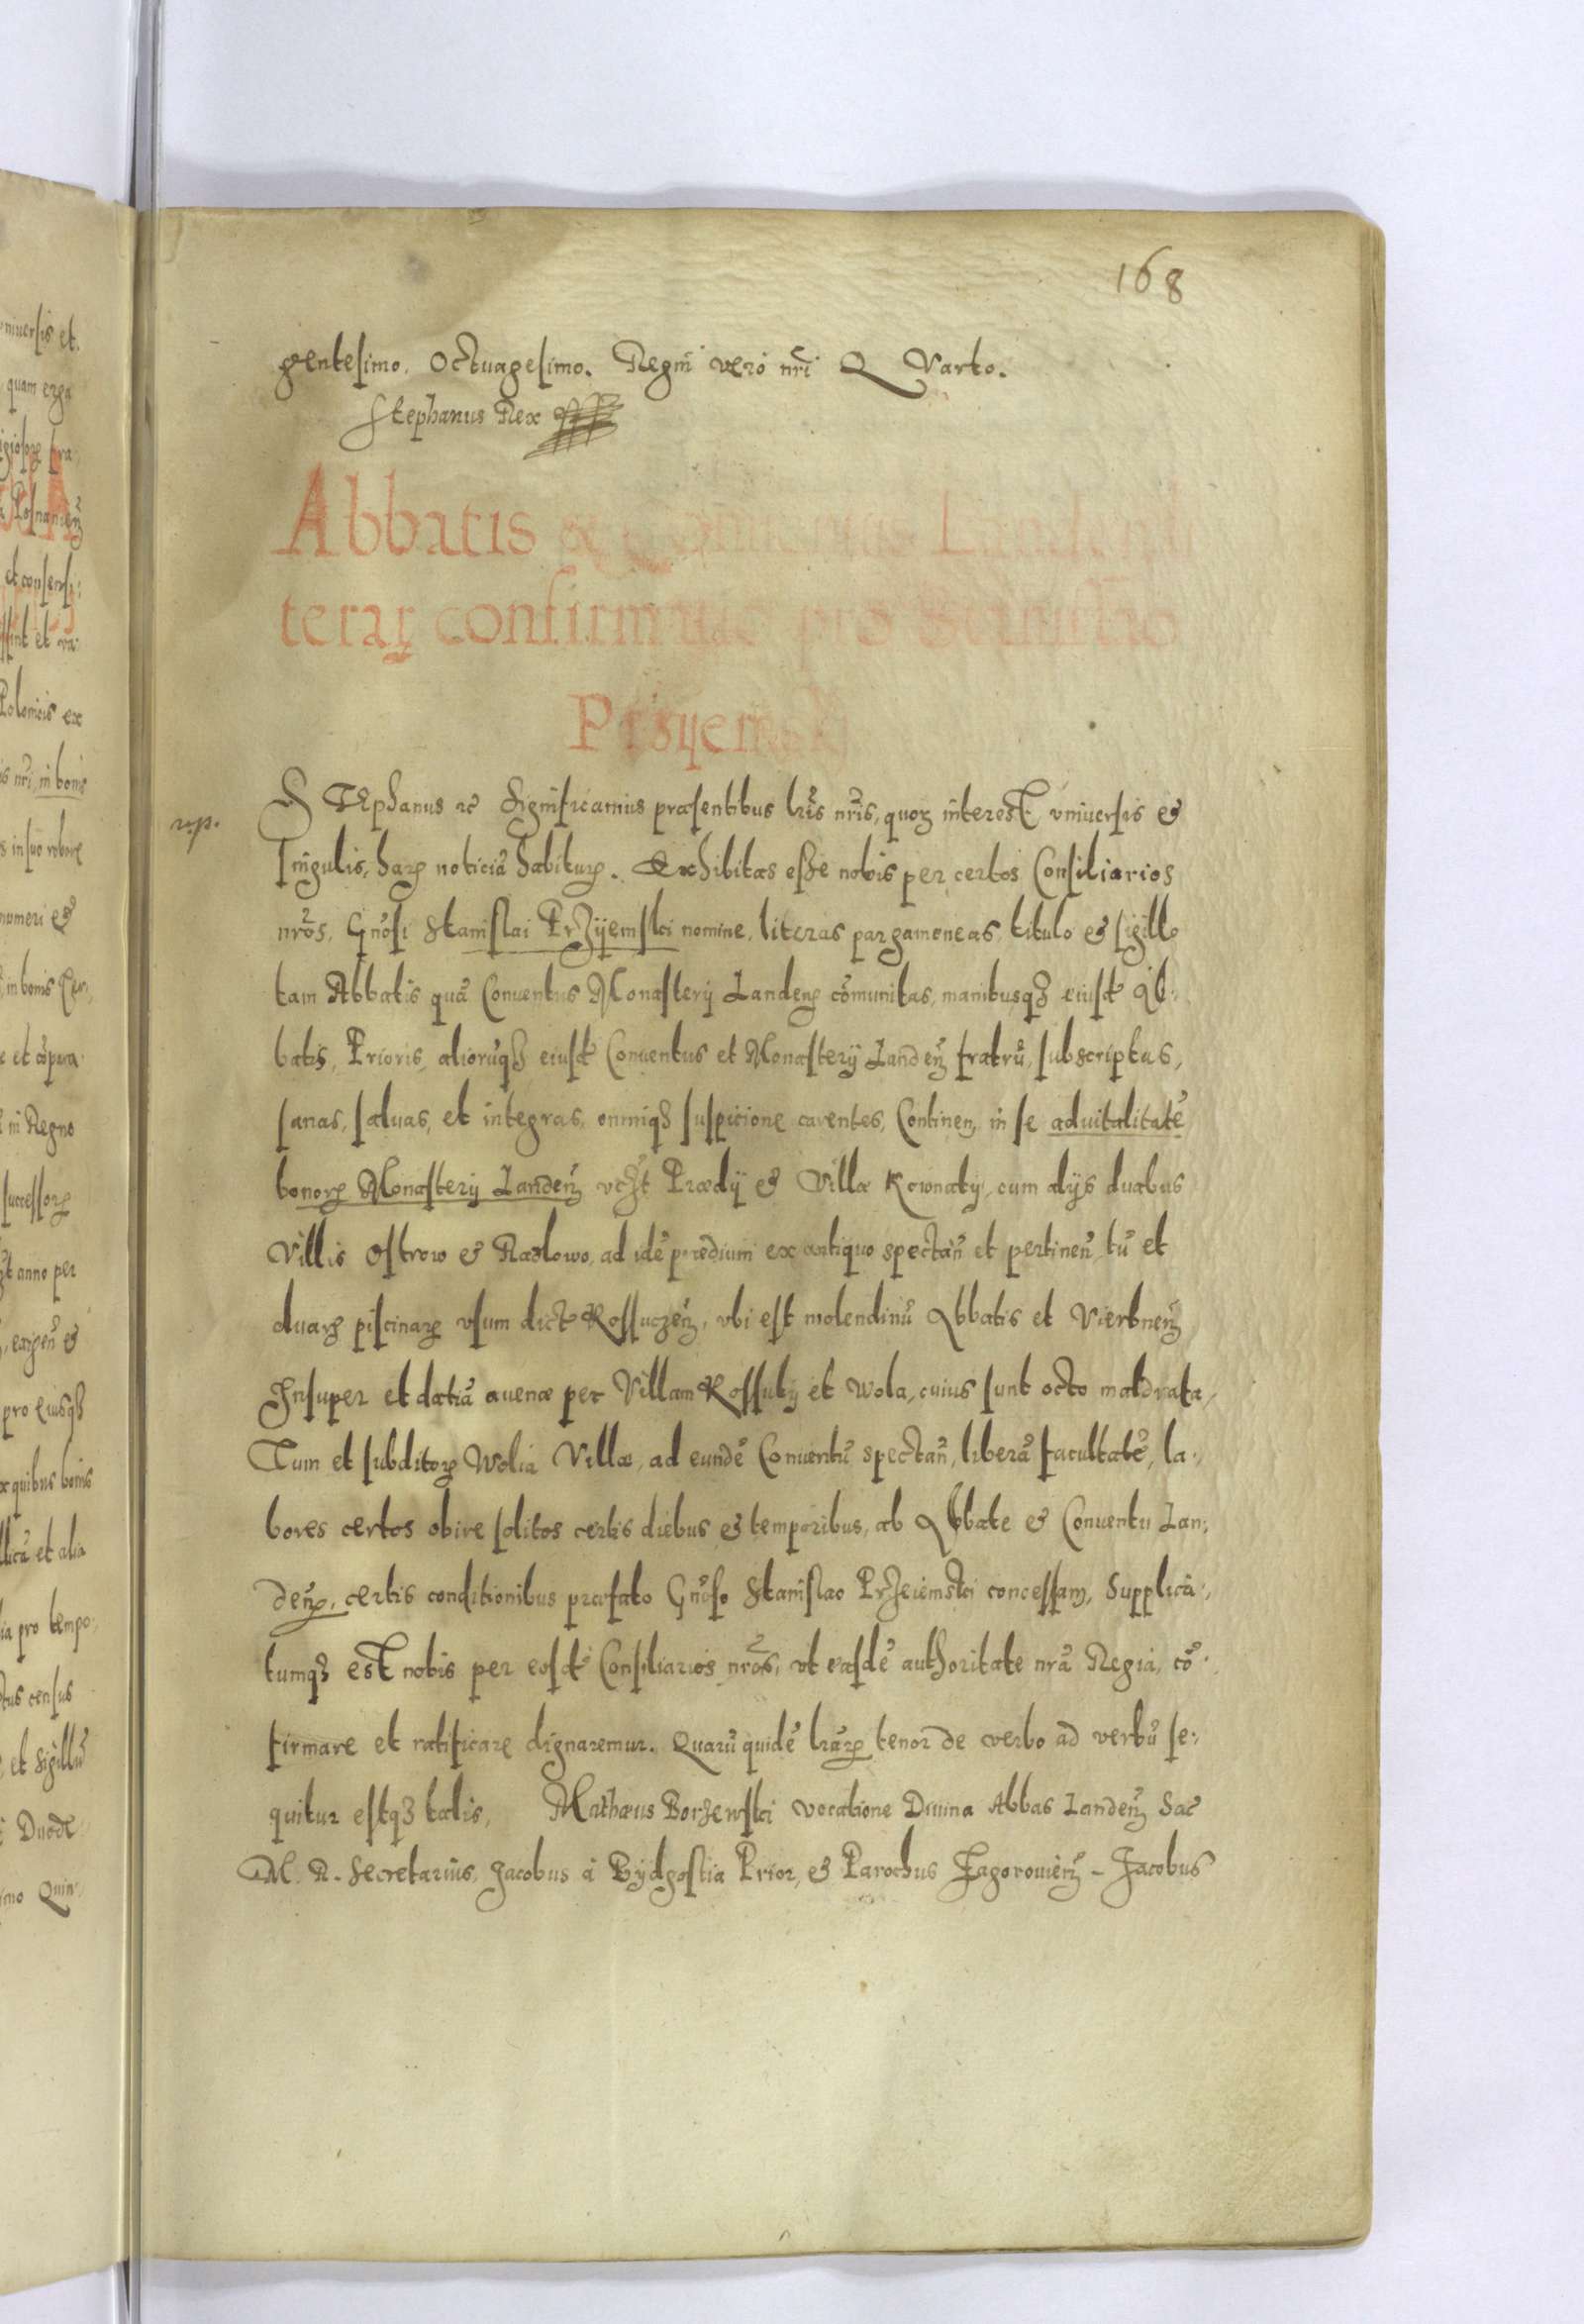 168
gentesimo. Octuagesimo. Regni vero nri Q Varto.
Stephanus Rex
Abbatis & Conventus Landen li
terarꝝ confirmatio pro Stanislao
Przyemski
r. p.
STEphanus ꝛc Significamus præsentibus lrĩs nrĩs, quoꝝ interest vniuersis &
singulis, harꝝ noticiã habiturꝝ. Exhibitas esse nobis per certos Consiliarios
nrõs, Gnõsi Stanislai Przÿemski nomine, literas pargameneas, titulo & sigillo
tam Abbatis quã Conuentus Monasterij Landenꝝ cõmunitas, manibusqꝫ eiusd Ab:
batis, Prioris, aliorũqꝫ eiusd Conuentus et Monasterÿ Landeñ fratrũ, subscriptas,
sanas, saluas, et integras, omniqꝫ suspicione carentes, Continen, in se aduitalitatẽ
bonorꝝ Monasterij Landeñ vcꝫt Prædij & Villæ Kownaty, cum alijs duabus
Villis Ostrow & Radlowo, ad idẽ prædium ex antiquo spectañ et pertineñ, tũ et
duarꝝ piscinarꝝ vsum dict Kossuczeñ, vbi est molendinũ Abbatis et Vierbneñ
Insuper et datiã auenæ per Villam Kossuty et Wola, cuius sunt octo maldrata,
Tum et subditorꝝ Wolia Villæ, ad eundẽ Conuentũ spectañ, liberã facultatẽ, la:
bores certos obire solitos certis diebus & temporibus, ab Abbate & Conuentu Lan:
deñ, certis conditionibus præfato Gnõso Stanislao Przeiemski concessam, Supplica:
tumqꝫ est nobis per eosd Consiliarios nrõs, vt easdẽ authoritate nrã Regia, cõ:
firmare et ratificare dignaremur. Quarũ quidẽ lrãrꝝ tenor de verbo ad verbũ se:
quitur estqꝫ talis, Mathæus Borzewski vocatione Diuina Abbas Landeñ Sac
M. R. Secretarius, Jacobus à Bÿdgostia Prior, & Parochus Zagorouieñ - Jacobus